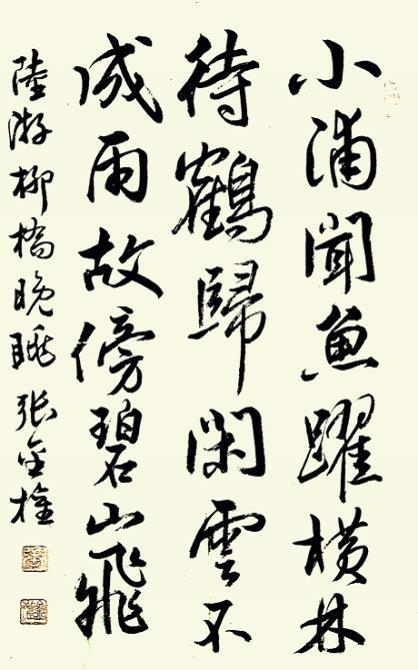 小浦聞魚躍橫林
待鶴歸閑雲不
成雨故傍碧山飛
陸游柳橋晚眺張金權